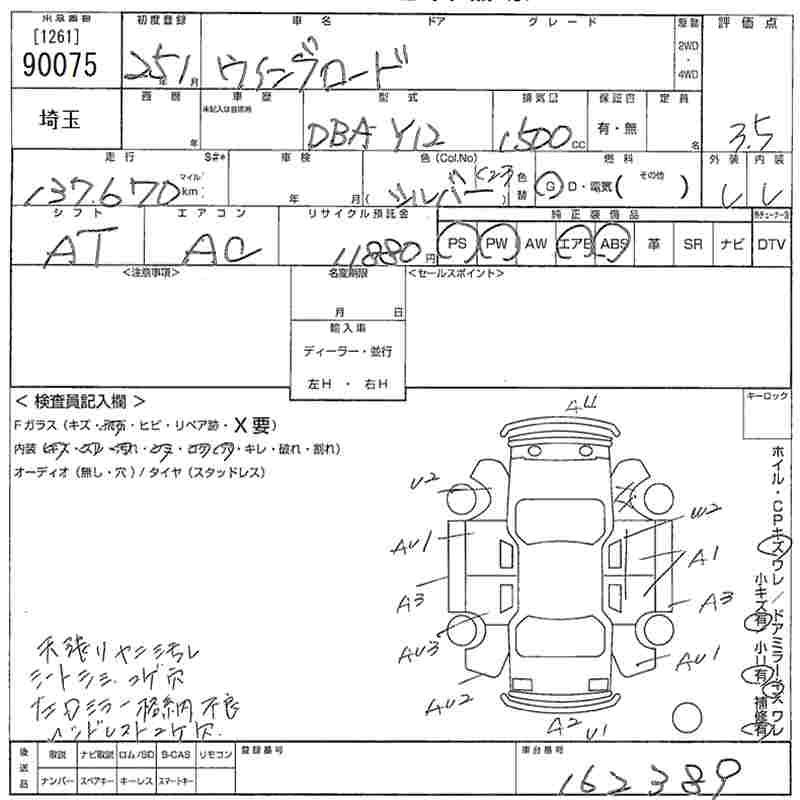 [1261]
90075
埼玉
初度登録
25年1月
車名
ドア
グレード
ウィングロード
駆動
2WD
・
4WD
評価点
3.5
西暦
年
車歴
未記入は自家用
型式
DBA Y12
排気量
1500cc
保証書
有・無
定員
名
走行
S#*
137,670
マイル
km
車検
年 月
色 (Col.No)
シルバー (K23)
色替
燃料
G D・電気 (その他 )
外装
内装
シフト
AT
エアコン
AC
リサイクル預託金
11880円
純正装備品
PS PW AW エアB ABS 革 SR ナビ
DTV
<注意事項>
名変期限
月 日
輸入車
ディーラー・並行
左H ・ 右H
<セールスポイント>
キーロック
< 検査員記入欄 >
Fガラス (キズ・飛石・ヒビ・リペア跡・X要)
内装 (キズ・スレ・汚れ・シミ・コゲ・穴・キレ・破れ・割れ)
オーディオ (無し・穴) / タイヤ (スタッドレス)
AU
U2
AU1
A3
AU3
AU2
W2
A1
A3
AU1
A2
U1
ホイル・CPキズワレ / ドアミラーキズワレ
小キズ有 小U有 補修有
天張リヤニ汚れ
シートシミ コゲ穴
左Dミラー格納不良
ヘッドレストコゲ穴
後送品
取説 ナビ取説 ロム/SD B-CAS リモコン
ナンバー スペアキー キーレス スマートキー
登録番号
車台番号
162389